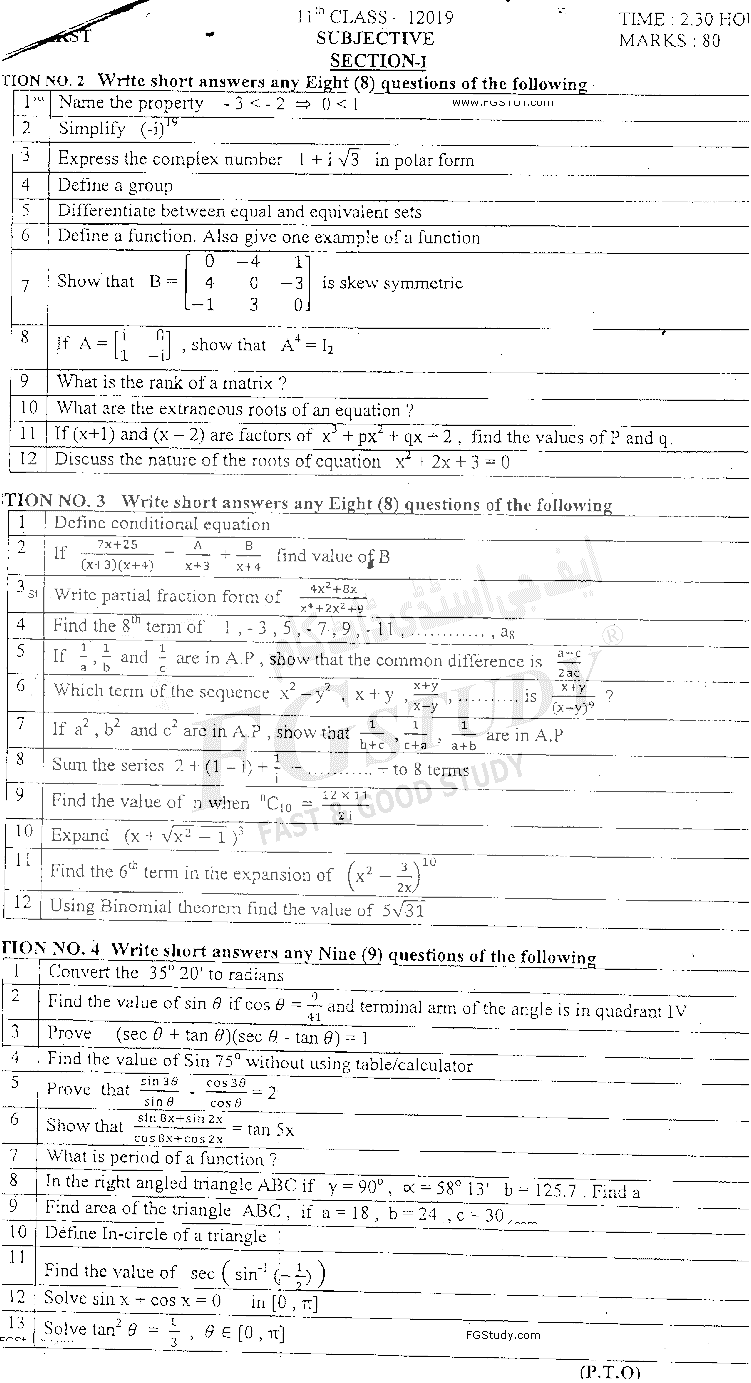 11th CLASS - 12019 TIME : 2.30 HO
SUBJECTIVE MARKS : 80
SECTION-I
TION NO. 2 Write short answers any Eight (8) questions of the following
1 Name the property - 3 < - 2 ⇒ 0 < 1 www.FGSTUDY.com
2 Simplify (-i)¹⁹
3 Express the complex number 1 + i √3 in polar form
4 Define a group
5 Differentiate between equal and equivalent sets
6 Define a function. Also give one example of a function
7 Show that B = [0 −4 1; 4 0 −3; −1 3 0] is skew symmetric
8 If A = [i 0; 1 −i] , show that A⁴ = I₂
9 What is the rank of a matrix ?
10 What are the extraneous roots of an equation ?
11 If (x+1) and (x − 2) are factors of x³ + px² + qx + 2 , find the values of P and q.
12 Discuss the nature of the roots of equation x² + 2x + 3 = 0
TION NO. 3 Write short answers any Eight (8) questions of the following
1 Define conditional equation
2 If (7x+25)/((x+3)(x+4)) = A/(x+3) + B/(x+4) find value of B
3 Write partial fraction form of (4x²+8x)/(x⁴+2x²+9)
4 Find the 8th term of 1 , - 3 , 5 , - 7 , 9 , - 11 , ............ , a₈
5 If 1/a , 1/b and 1/c are in A.P , show that the common difference is (a−c)/2ac
6 Which term of the sequence x² − y² , x + y , (x+y)/(x−y) , ......... is (x+y)/(x−y)⁹ ?
7 If a² , b² and c² are in A.P , show that 1/(b+c) , 1/(c+a) , 1/(a+b) are in A.P
8 Sum the series 2 + (1 − i) + 1/i + ........... to 8 terms
9 Find the value of n when ⁿC₁₀ = (12 × 11)/2!
10 Expand (x + √x² − 1 )³
11 Find the 6th term in the expansion of (x² − 3/2x)¹⁰
12 Using Binomial theorem find the value of 5√31
ایف جی اسٹڈی ڈاٹ کام
FGSTUDY ®
FAST & GOOD STUDY
TION NO. 4 Write short answers any Nine (9) questions of the following
1 Convert the 35° 20' to radians
2 Find the value of sin θ if cos θ = 9/41 and terminal arm of the angle is in quadrant 1V
3 Prove (sec θ + tan θ)(sec θ - tan θ) = 1
4 Find the value of Sin 75° without using table/calculator
5 Prove that sin 3θ/sin θ - cos 3θ/cos θ = 2
6 Show that (sin 8x+sin 2x)/(cos 8x+cos 2x) = tan 5x
7 What is period of a function ?
8 In the right angled triangle ABC if γ = 90° , ∝ = 58° 13' b = 125.7 . Find a
9 Find area of the triangle ABC , if a = 18 , b = 24 , c = 30
10 Define In-circle of a triangle
11 Find the value of sec ( sin⁻¹ (−1/2) )
12 Solve sin x + cos x = 0 in [0 , π]
13 Solve tan² θ = 1/3 , θ ∈ [0 , π] FGStudy.com
(P.T.O)